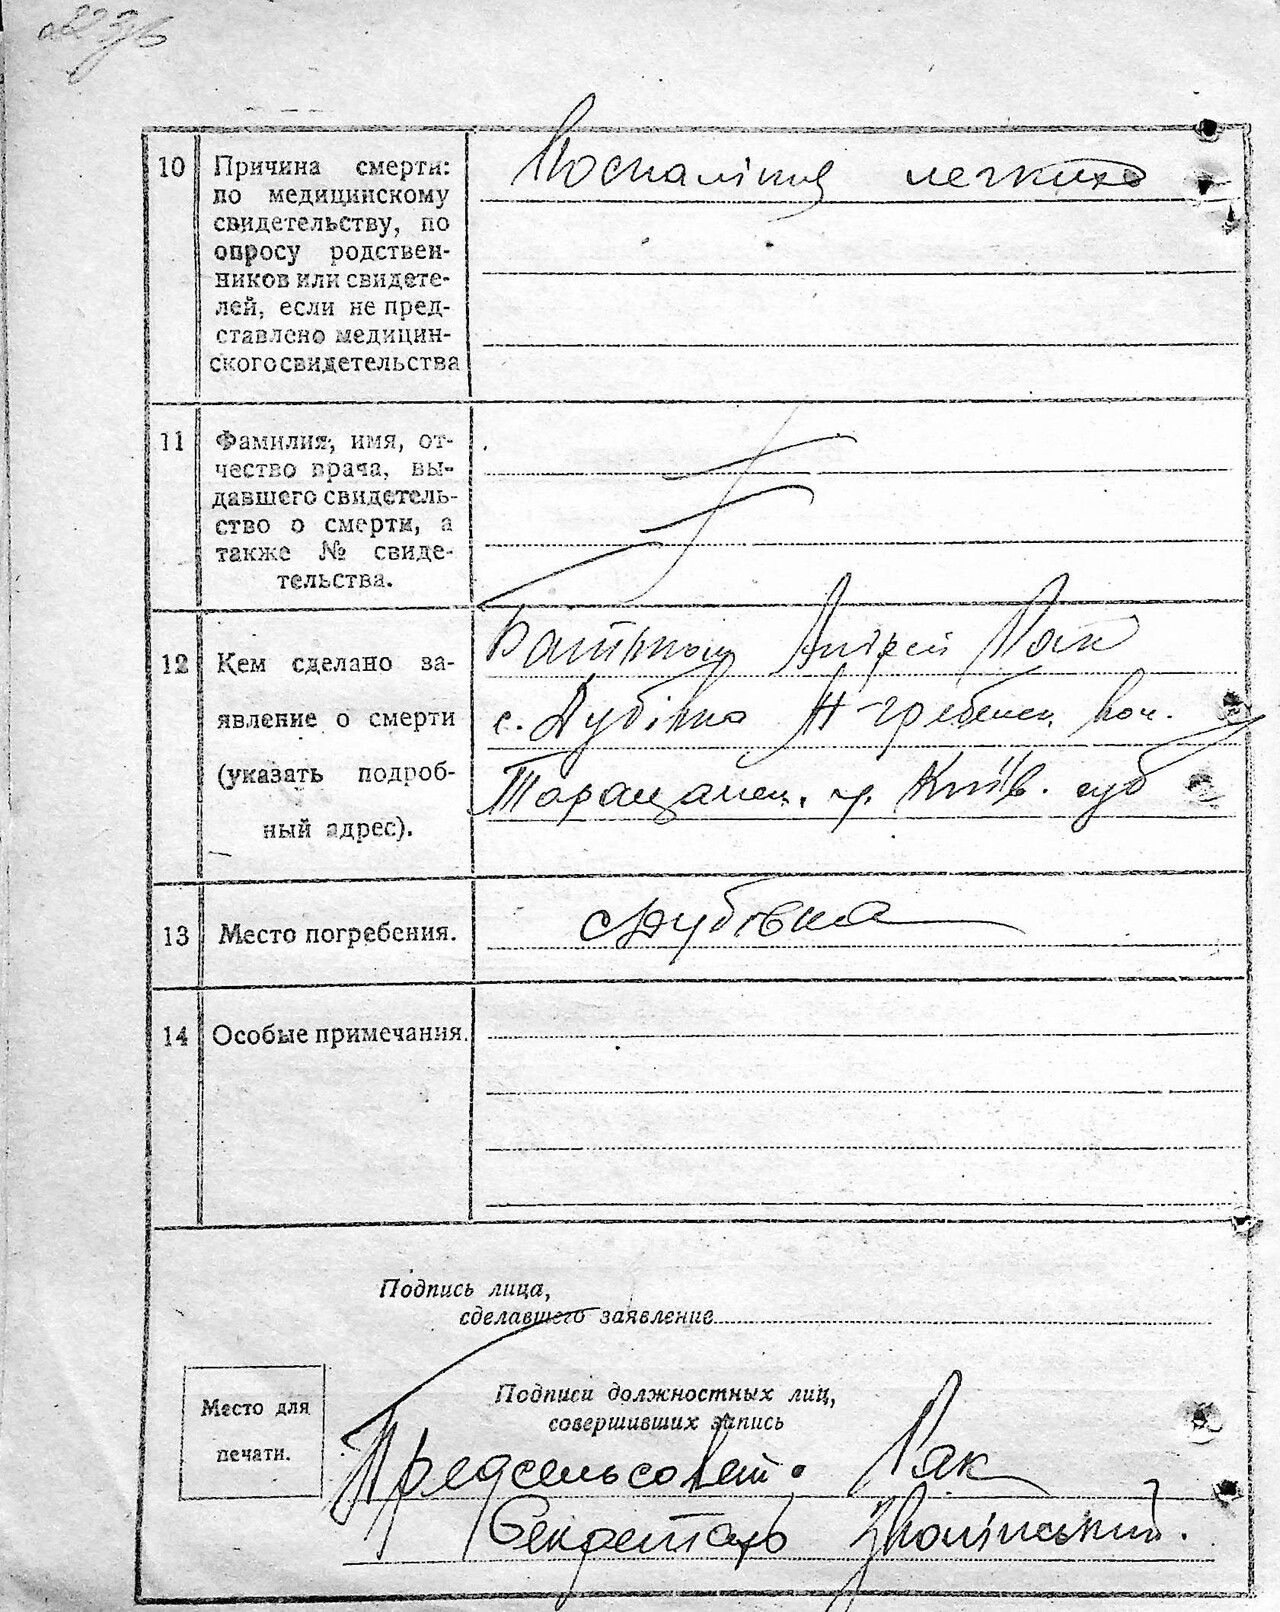 10 Причина смерти:
по медицинскому
свидетельству, по
опросу родствен-
ников или свидете-
лей, если не пред-
ставлено медицин-
ского свидетельства
легких
11 Фамилия, имя, от-
чество врача, вы-
давшего свидетель-
ство о смерти, а
также № свиде-
тельства.
12 Кем сделано за-
явление о смерти
(указать подроб-
ный адрес).
Батьком Андрей Рак
с. Дубівка Н-гребенец. вол.
Таращанск. у. Київ. губ
13 Место погребения.
с Дубівка
14 Особые примечания.
Подпись лица,
сделавшего заявление
Место для
печати.
Подписи должностных лиц,
совершивших запись
Предсельсовет. Рак
Секретарь